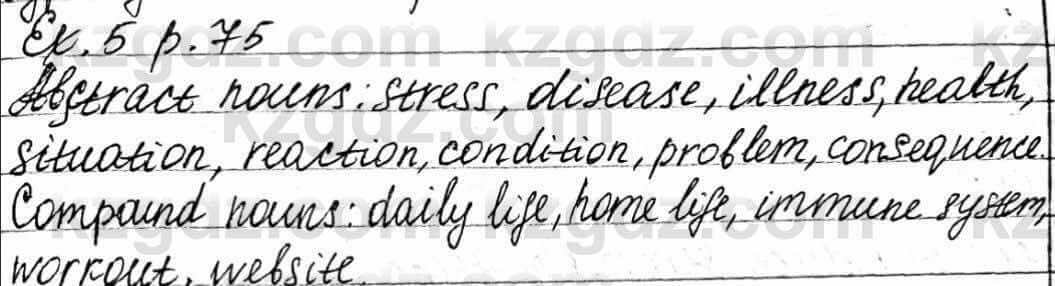 Ex. 5 p. 75
Abstract nouns: stress, disease, illness, health,
situation, reaction, condition, problem, consequence.
Compound nouns: daily life, home life, immune system,
workout, website.
kzgdz.com